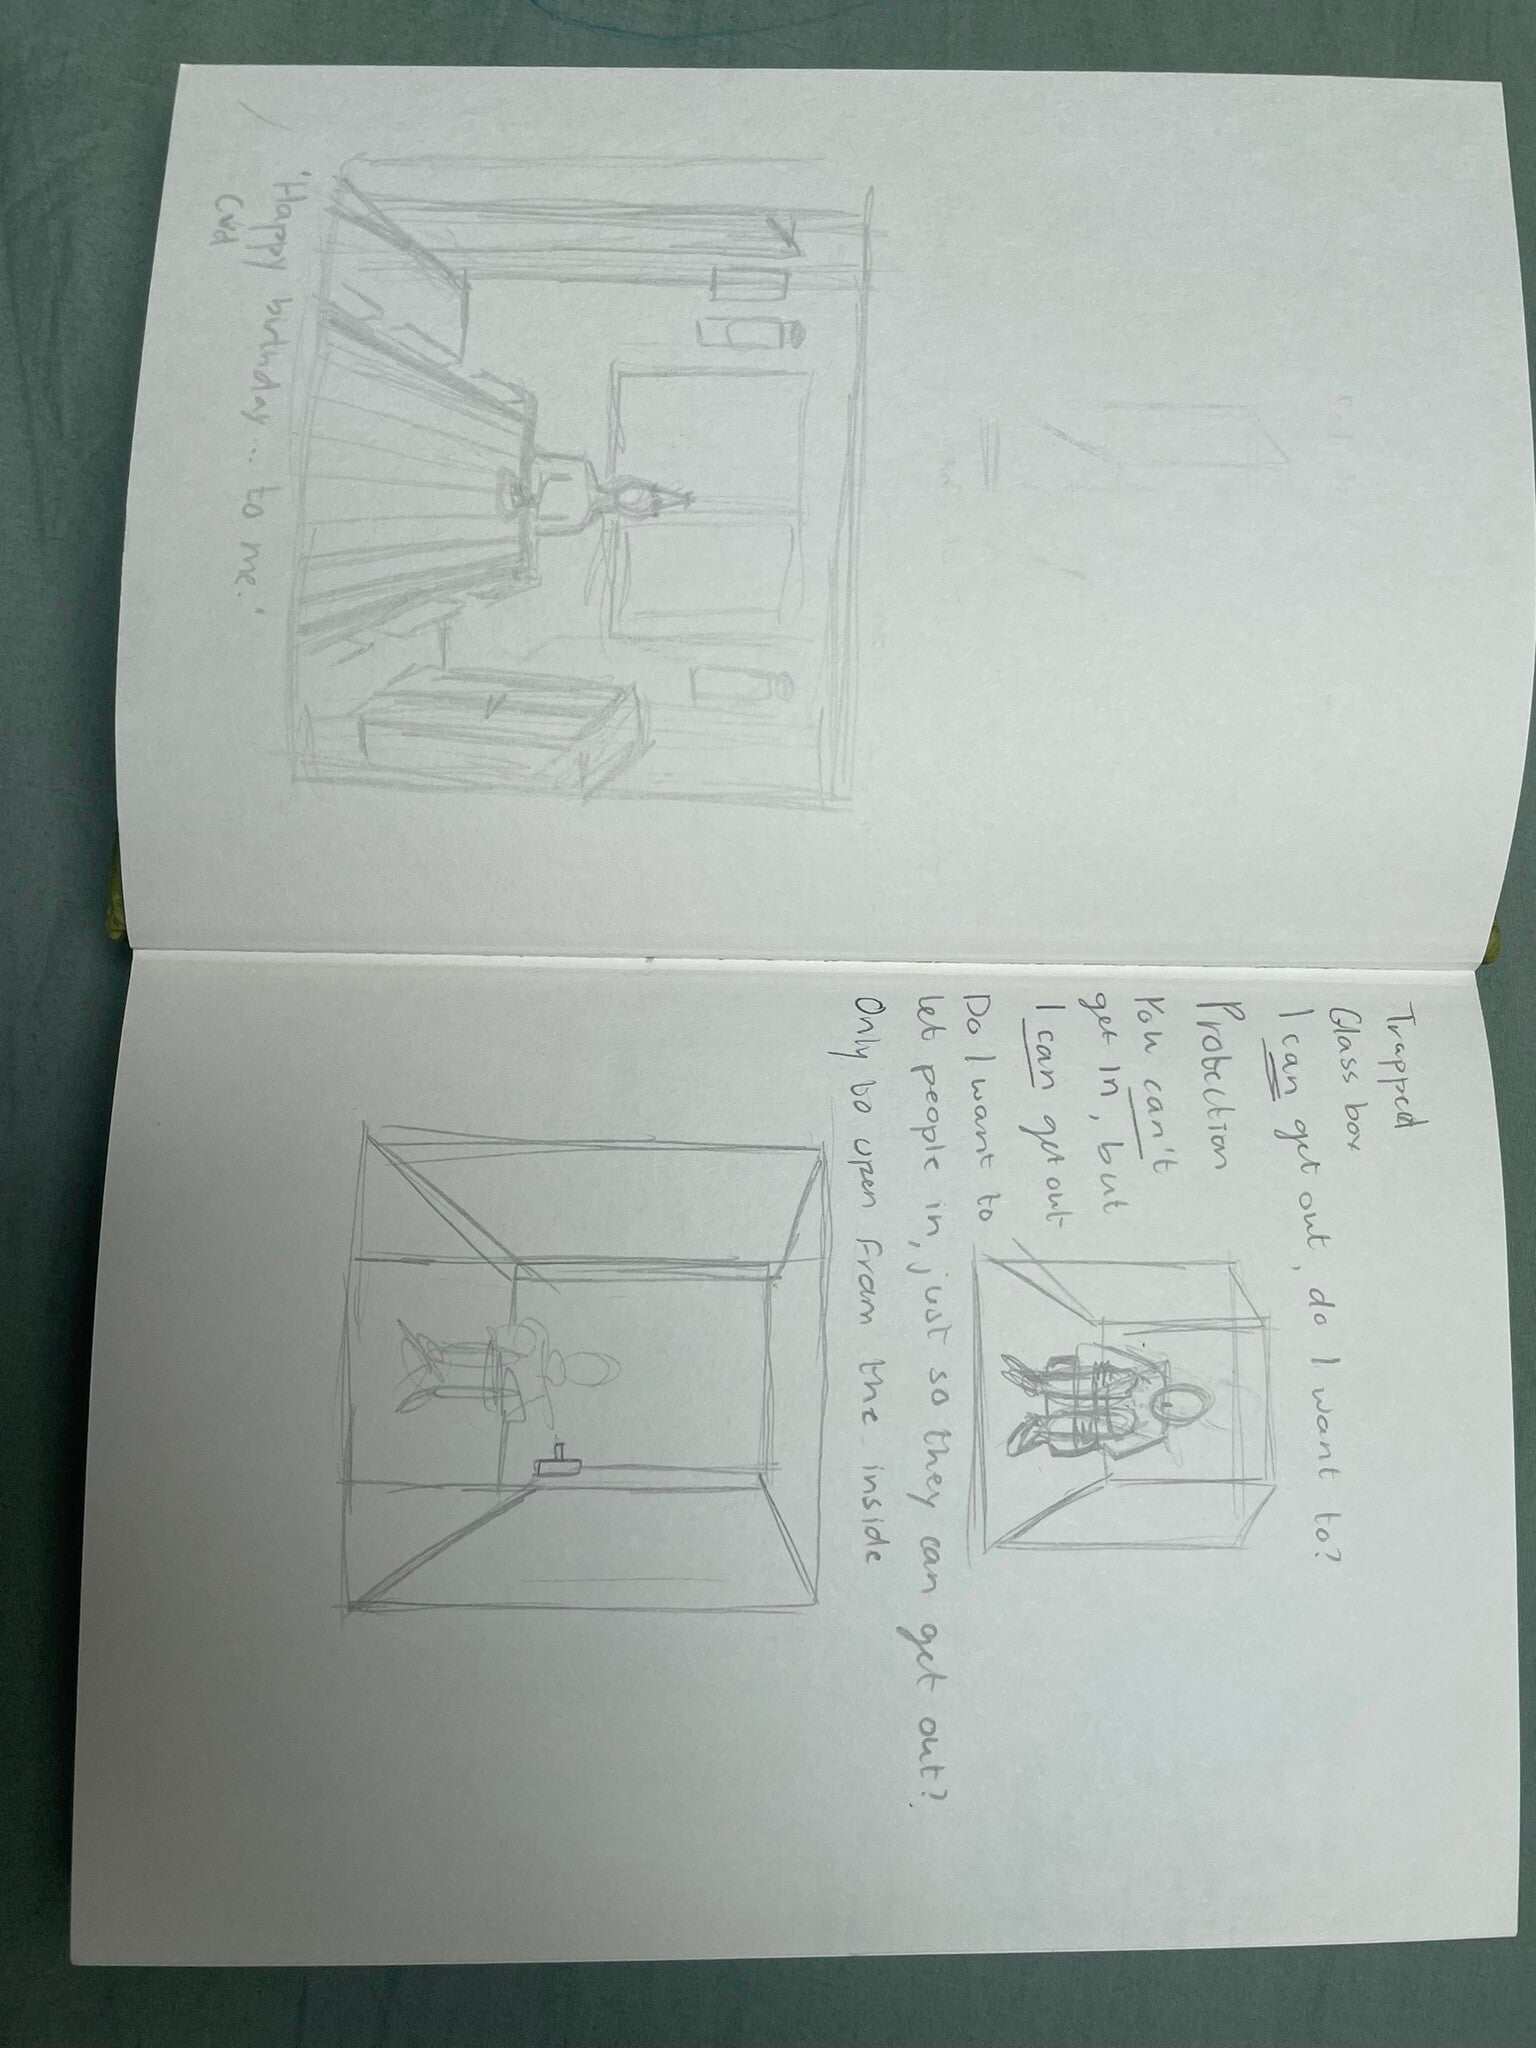 'Happy birthday... to me.'
Trapped
Glass box
I can get out, do I want to?
Protection
You can't
get in, but
I can get out
Do I want to
let people in, just so they can get out?
Only to open from the inside